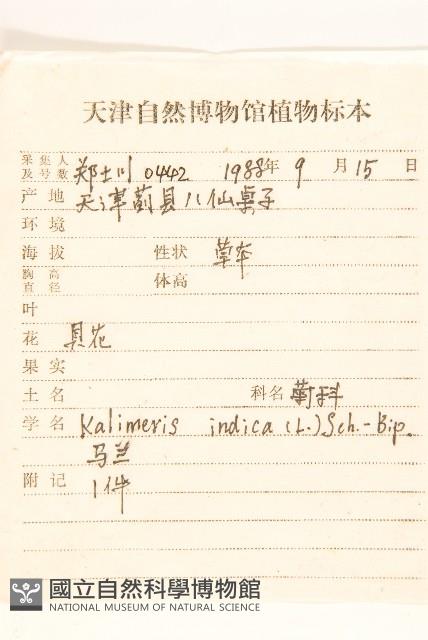 天津自然博物馆植物标本
采集人及号数 郑士川 0442 1988年 9 月 15 日
产地 天津蓟县八仙桌子
环境
海拔 性状 草本
胸高直径 体高
叶
花 具花
果实
土名 科名 菊科
学名 Kalimeris indica (L.) Sch.-Bip.
马兰
附记 1件
國立自然科學博物館
NATIONAL MUSEUM OF NATURAL SCIENCE